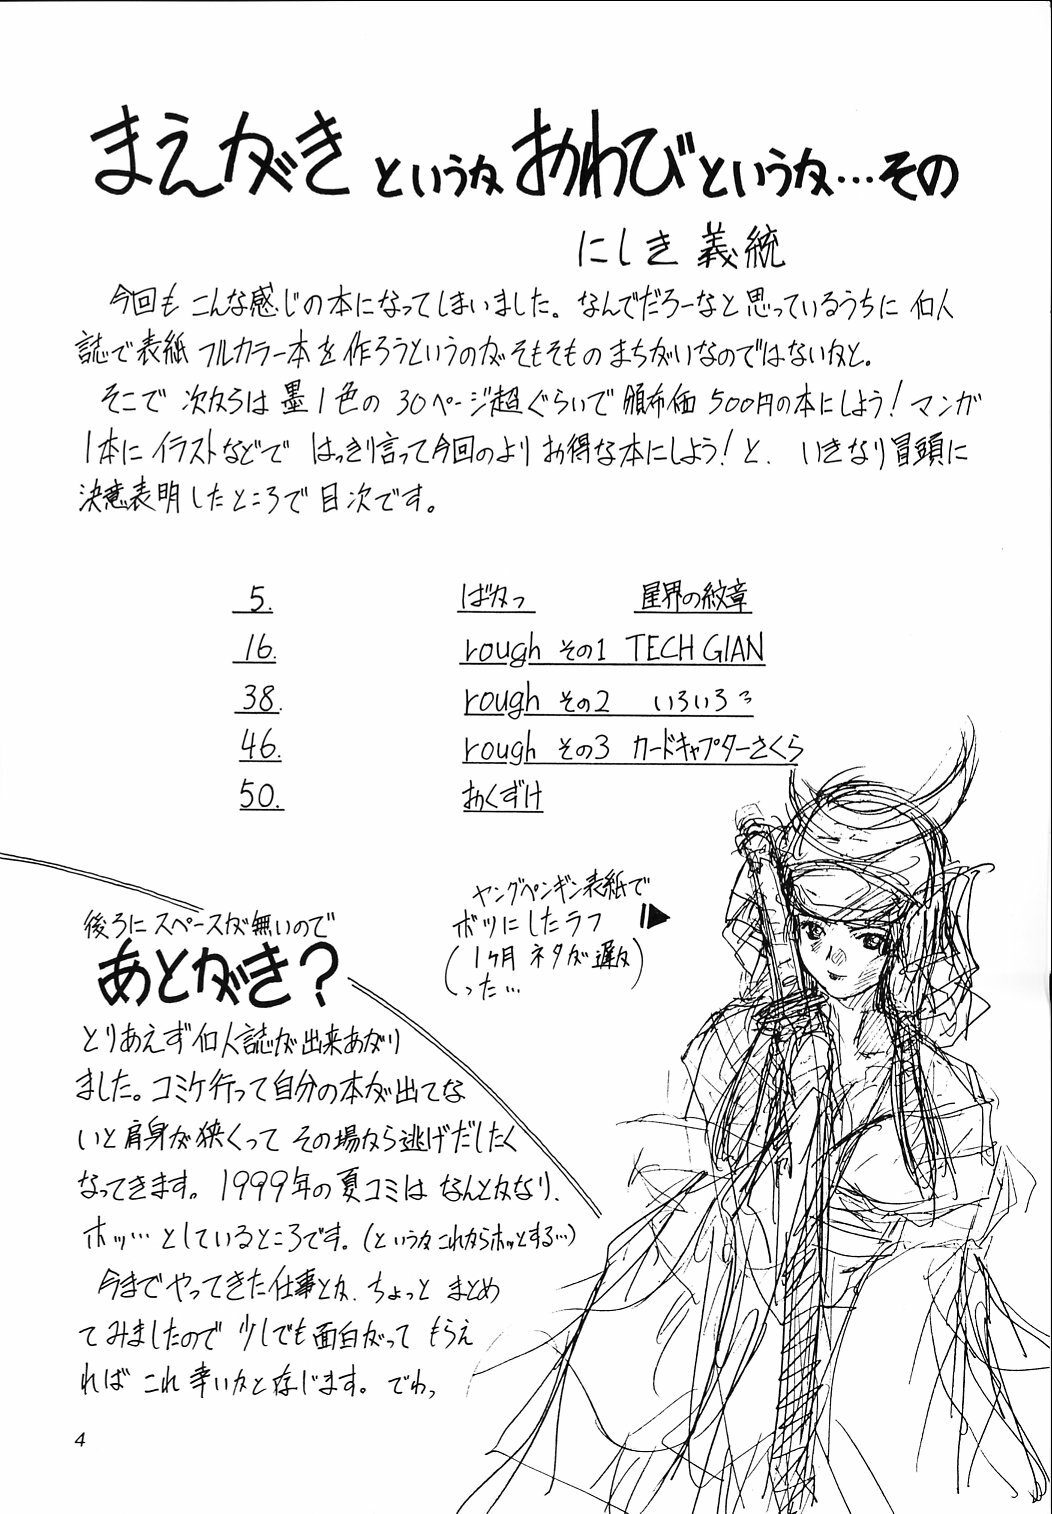 まえがきというかおわびというか…その
にしき義統
今回もこんな感じの本になってしまいました。なんでだろーなと思っているうちに同人
誌で表紙フルカラー本を作ろうというのがそもそものまちがいなのではないかと。
そこで次からは墨1色の30ページ超ぐらいで頒布価500円の本にしよう！マンガ
1本にイラストなどではっきり言って今回のよりお得な本にしよう！と、いきなり冒頭に
決意表明したところで目次です。
5. ばかっ 星界の紋章
16. rough その1 TECH GIAN
38. rough その2 いろいろろ
46. rough その3 カードキャプターさくら
50. おくずけ
ヤングペンギン表紙で
ボツにしたラフ
(1ヶ月ネタが遅か)
(った…
後ろにスペースが無いので
あとがき？
とりあえず同人誌が出来あがり
ました。コミケ行って自分の本が出てな
いと肩身が狭くってその場から逃げだしたく
なってきます。1999年の夏コミはなんとかなり、
ホッ…としているところです。(というかこれからホッとする…)
今までやってきた仕事とか、ちょっとまとめ
てみましたので少しでも面白がってもらえ
ればこれ幸いかと存じます。でわっ
4